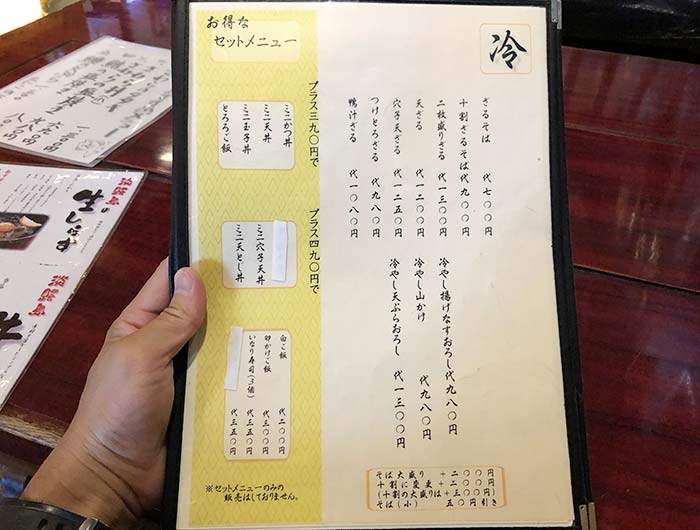 冷
ざるそば 代七〇〇円
十割ざるそば 代九〇〇円
二枚盛りざる 代一三〇〇円
天ざる 代一二〇〇円
穴子天ざる 代一二五〇円
つけとろざる 代九八〇円
鴨汁ざる 代一〇八〇円
冷やし揚げなすおろし 代九八〇円
冷やし山かけ 代九八〇円
冷やし天ぷらおろし 代一三〇〇円
そば大盛り +二〇〇円
十割に変更 +二〇〇円
(十割の大盛りは+三〇〇円)
そば(小) 五〇円引き
お得な
セットメニュー
プラス三九〇円で
ミニかつ丼
ミニ天丼
ミニ玉子丼
とろろご飯
プラス四九〇円で
ミニ穴子天丼
ミニ天とじ丼
白ご飯 代二〇〇円
卵かけご飯 代三〇〇円
いなり寿司(3個) 代三五〇円
代三五〇円
※セットメニューのみの
販売はしておりません。